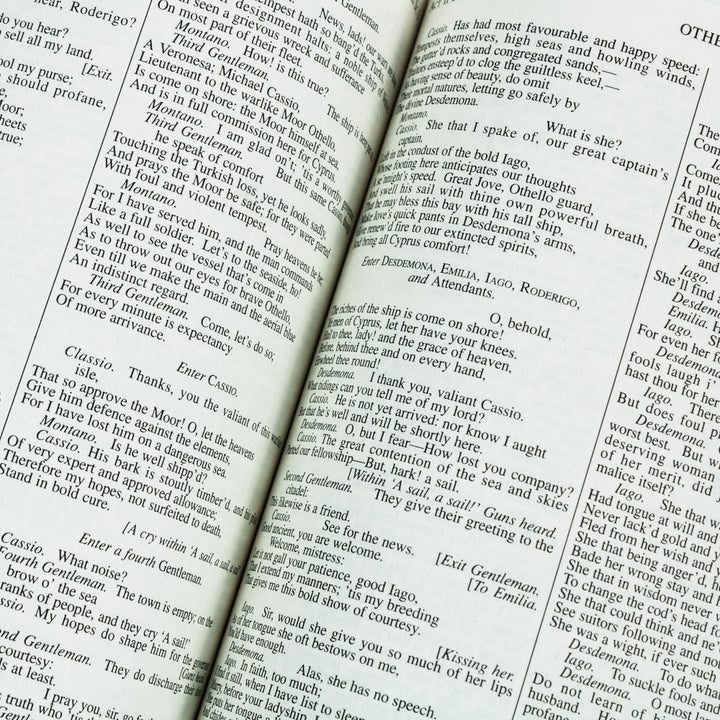 hear, Roderigo?
do you hear?
sell all my land.
[Exit.
ool my purse;
should profane,
Moor;
sheets
true;
News, lads! our wars
Gentleman.
tempest hath so bang'd the Turks
designment halts: a noble ship of
seen a grievous wreck and sufferance
On most part of their fleet.
Montano. How! is this true?
Third Gentleman. The ship is here
A Veronesa; Michael Cassio,
Lieutenant to the warlike Moor Othello,
Is come on shore: the Moor himself at sea,
And is in full commission here for Cyprus.
Montano. I am glad on't; 'tis a worthy
Third Gentleman. But this same Cassio,
he speak of comfort
Touching the Turkish loss, yet he looks sadly
And prays the Moor be safe; for they were parted
With foul and violent tempest.
Montano. Pray heavens he be;
For I have served him, and the man commands
Like a full soldier. Let's to the seaside, ho!
As well to see the vessel that's come in
As to throw out our eyes for brave Othello,
Even till we make the main and the aerial blue
An indistinct regard.
Third Gentleman. Come, let's do so;
For every minute is expectancy
Of more arrivance.
Enter CASSIO.
Classio. Thanks, you the valiant of this
isle,
That so approve the Moor! O, let the heavens
Give him defence against the elements,
For I have lost him on a dangerous sea.
Montano. Is he well shipp'd?
Cassio. His bark is stoutly timber'd, and his
Of very expert and approved allowance;
Therefore my hopes, not surfeited to death,
Stand in bold cure.
[A cry within 'A sail, a sail, a sail!'
Enter a fourth Gentleman.
Cassio. What noise?
Fourth Gentleman. The town is empty; on the
brow o' the sea
ranks of people, and they cry 'A sail!'
Cassio. My hopes do shape him for the governor.
[Guns heard.
Second Gentleman. They do discharge their
courtesy:
ds at least.
I pray you, sir, go
truth who 'tis
OTHE
Cassio. Has had most favourable and happy speed:
Tempests themselves, high seas and howling winds,
The gutter'd rocks and congregated sands,—
ensteep'd to clog the guiltless keel,—
having sense of beauty, do omit
Their mortal natures, letting go safely by
The divine Desdemona.
Montano. What is she?
Cassio. She that I spake of, our great captain's
captain,
Left in the conduct of the bold Iago,
Whose footing here anticipates our thoughts
A se'nnight's speed. Great Jove, Othello guard,
And swell his sail with thine own powerful breath,
That he may bless this bay with his tall ship,
Make love's quick pants in Desdemona's arms,
Give renew'd fire to our extincted spirits,
And bring all Cyprus comfort!
Enter DESDEMONA, EMILIA, IAGO, RODERIGO,
and Attendants.
O, behold,
The riches of the ship is come on shore!
Ye men of Cyprus, let her have your knees.
Hail to thee, lady! and the grace of heaven,
Before, behind thee and on every hand,
Enwheel thee round!
Desdemona. I thank you, valiant Cassio.
What tidings can you tell me of my lord?
Cassio. He is not yet arrived: nor know I aught
But that he's well and will be shortly here.
Desdemona. O, but I fear—How lost you company?
Cassio. The great contention of the sea and skies
Parted our fellowship,—But, hark! a sail.
[Within 'A sail, a sail!' Guns heard.
Second Gentleman. They give their greeting to the
citadel:
This likewise is a friend.
Cassio. See for the news.
[Exit Gentleman.
Good ancient, you are welcome.
[To Emilia.
Welcome, mistress:
Let it not gall your patience, good Iago,
That I extend my manners; 'tis my breeding
That gives me this bold show of courtesy.
[Kissing her.
Iago. Sir, would she give you so much of her lips
As of her tongue she oft bestows on me,
You'd have enough.
Desdemona. Alas, she has no speech.
Iago. In faith, too much;
I find it still, when I have list to sleep:
Marry, before your ladyship,
She puts her tongue
The
Com
I
Come
It plu
And th
If she be
The one'
Desd
and
Iago.
She'll find
Desdem
Emilia.
Iago. S
For even her f
Desdemona
fools laugh i'
hast thou for her
Iago. There
But does foul p
Desdemona.
worst best. But w
deserving woman
of her merit, did
malice itself?
Iago. She that w
Had tongue at will and
Never lack'd gold and
Fled from her wish and
She that being anger'd, h
Bade her wrong stay and h
She that in wisdom never w
To change the cod's head f
She that could think and ne'
See suitors following and no
She was a wight, if ever such
Desdemona. To do what
Iago. To suckle fools and
Desdemona. O most l
Do not learn of
husband. How
profane